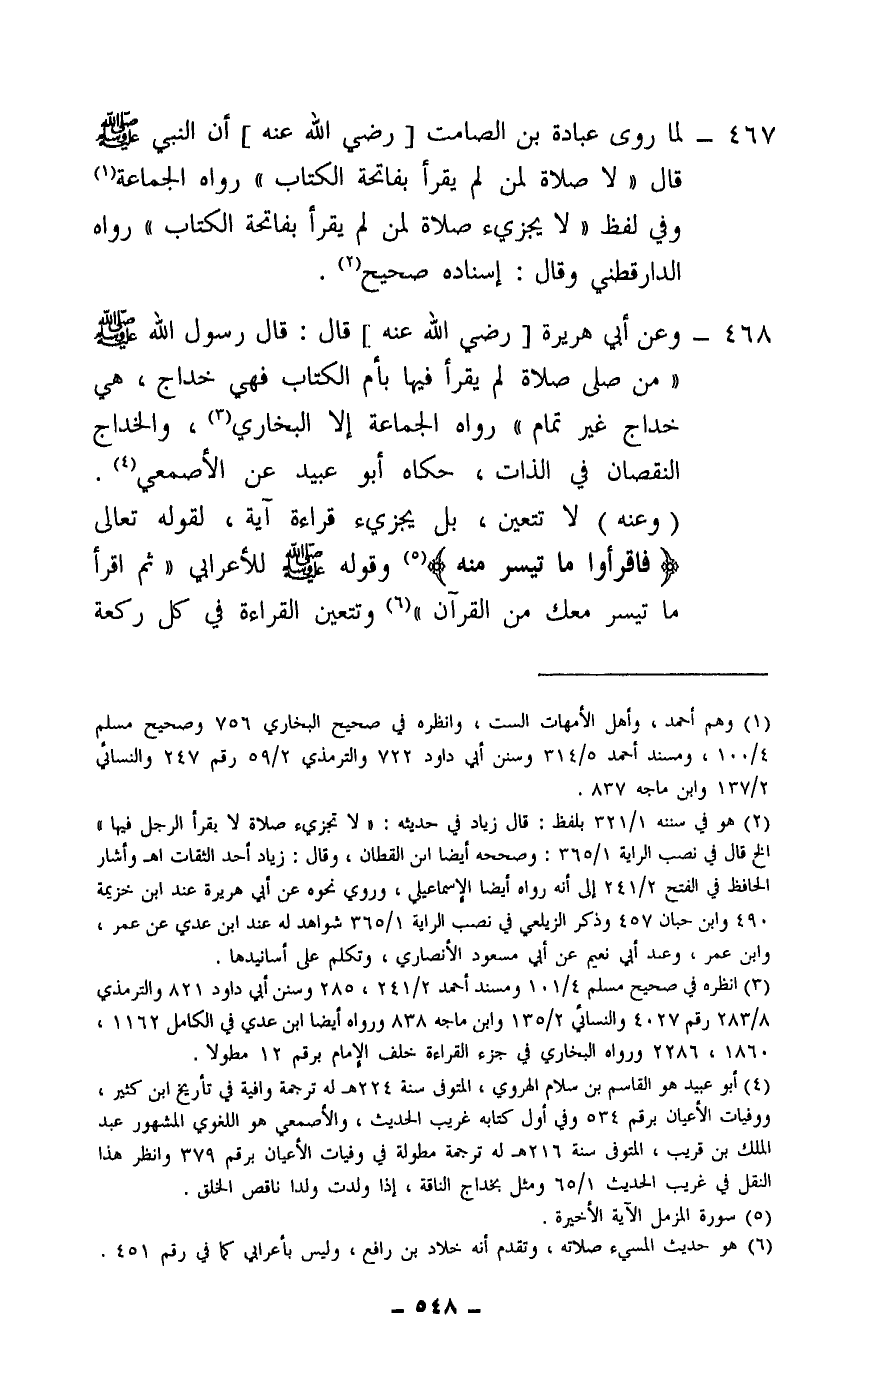 ٤٦٧ ــ لما روى عبادة بن الصامت [ رضي الله عنه ] أن النبي ﷺ
قال « لا صلاة لمن لم يقرأ بفاتحة الكتاب » رواه الجماعة(١)
وفي لفظ « لا يجزيء صلاة لمن لم يقرأ بفاتحة الكتاب » رواه
الدارقطني وقال : إسناده صحيح(٢) .
٤٦٨ ــ وعن أبي هريرة [ رضي الله عنه ] قال : قال رسول الله ﷺ
« من صلى صلاة لم يقرأ فيها بأم الكتاب فهي خداج ، هي
خداج غير تمام » رواه الجماعة إلا البخاري(٣) ، والخداج
النقصان في الذات ، حكاه أبو عبيد عن الأصمعي(٤) .
( وعنه ) لا تتعين ، بل يجزيء قراءة آية ، لقوله تعالى
﴿ فاقرأوا ما تيسر منه ﴾(٥) وقوله ﷺ للأعرابي « ثم اقرأ
ما تيسر معك من القرآن »(٦) وتتعين القراءة في كل ركعة
(١) وهم أحمد ، وأهل الأمهات الست ، وانظره في صحيح البخاري ٧٥٦ وصحيح مسلم
١٠٠/٤ ، ومسند أحمد ٣١٤/٥ وسنن أبي داود ٧٢٢ والترمذي ٥٩/٢ رقم ٢٤٧ والنسائي
١٣٧/٢ وابن ماجه ٨٣٧ .
(٢) هو في سننه ٣٢١/١ بلفظ : قال زياد في حديثه : « لا تجزيء صلاة لا يقرأ الرجل فيها »
الخ قال في نصب الراية ٣٦٥/١ : وصححه أيضا ابن القطان ، وقال : زياد أحد الثقات اهـ وأشار
الحافظ في الفتح ٢٤١/٢ إلى أنه رواه أيضا الإسماعيلي ، وروي نحوه عن أبي هريرة عند ابن خزيمة
٤٩٠ وابن حبان ٤٥٧ وذكر الزيلعي في نصب الراية ٣٦٥/١ شواهد له عند ابن عدي عن عمر ،
وابن عمر ، وعند أبي نعيم عن أبي مسعود الأنصاري ، وتكلم على أسانيدها .
(٣) انظره في صحيح مسلم ١٠١/٤ ومسند أحمد ٢٤١/٢ ، ٢٨٥ وسنن أبي داود ٨٢١ والترمذي
٢٨٣/٨ رقم ٤٠٢٧ والنسائي ١٣٥/٢ وابن ماجه ٨٣٨ ورواه أيضا ابن عدي في الكامل ١١٦٢ ،
١٨٦٠ ، ٢٢٨٦ ورواه البخاري في جزء القراءة خلف الإمام برقم ١٢ مطولا .
(٤) أبو عبيد هو القاسم بن سلام الهروي ، المتوفى سنة ٢٢٤هـ له ترجمة وافية في تأريخ ابن كثير ،
ووفيات الأعيان برقم ٥٣٤ وفي أول كتابه غريب الحديث ، والأصمعي هو اللغوي المشهور عبد
الملك بن قريب ، المتوفى سنة ٢١٦هـ له ترجمة مطولة في وفيات الأعيان برقم ٣٧٩ وانظر هذا
النقل في غريب الحديث ٦٥/١ ومثل بخداج الناقة ، إذا ولدت ولدا ناقص الخلق .
(٥) سورة المزمل الآية الأخيرة .
(٦) هو حديث المسيء صلاته ، وتقدم أنه خلاد بن رافع ، وليس بأعرابي كما في رقم ٤٥١ .
ــ ٥٤٨ ــ